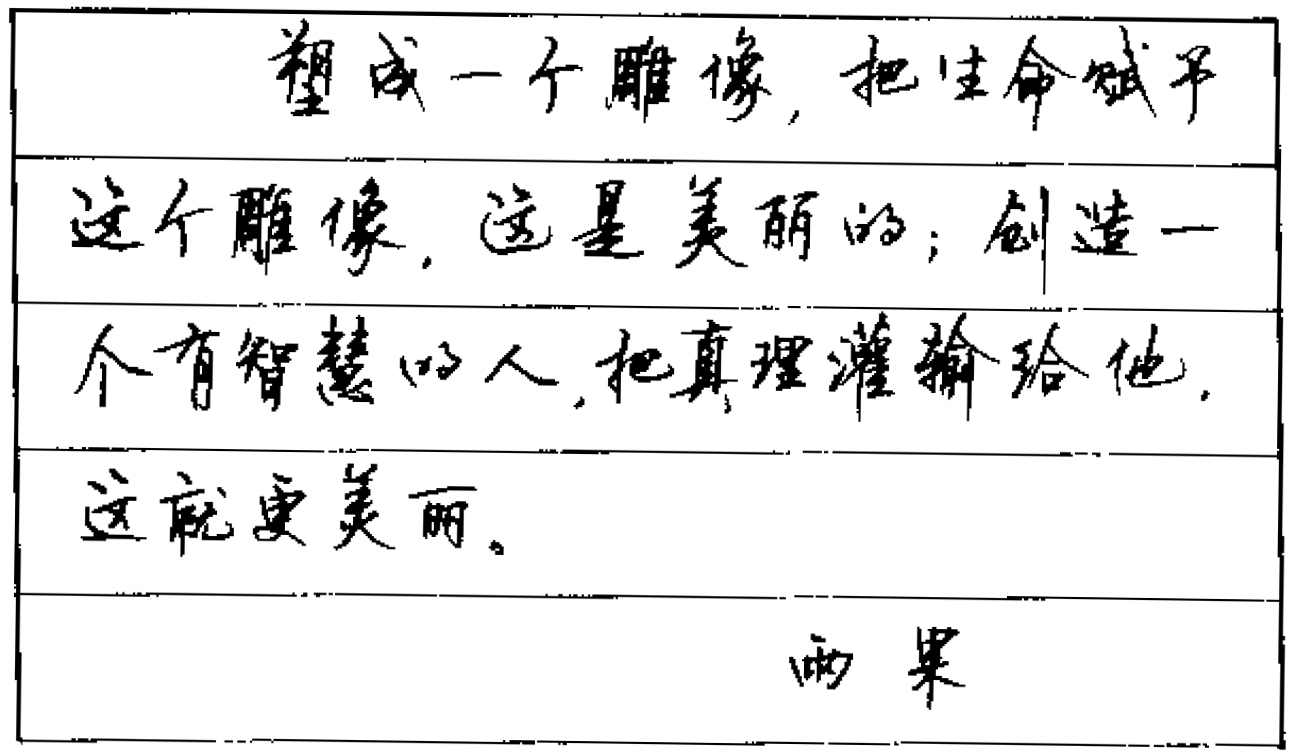 塑成一个雕像,把生命赋予
这个雕像,这是美丽的;创造一
个有智慧的人,把真理灌输给他,
这就更美丽。
雨果